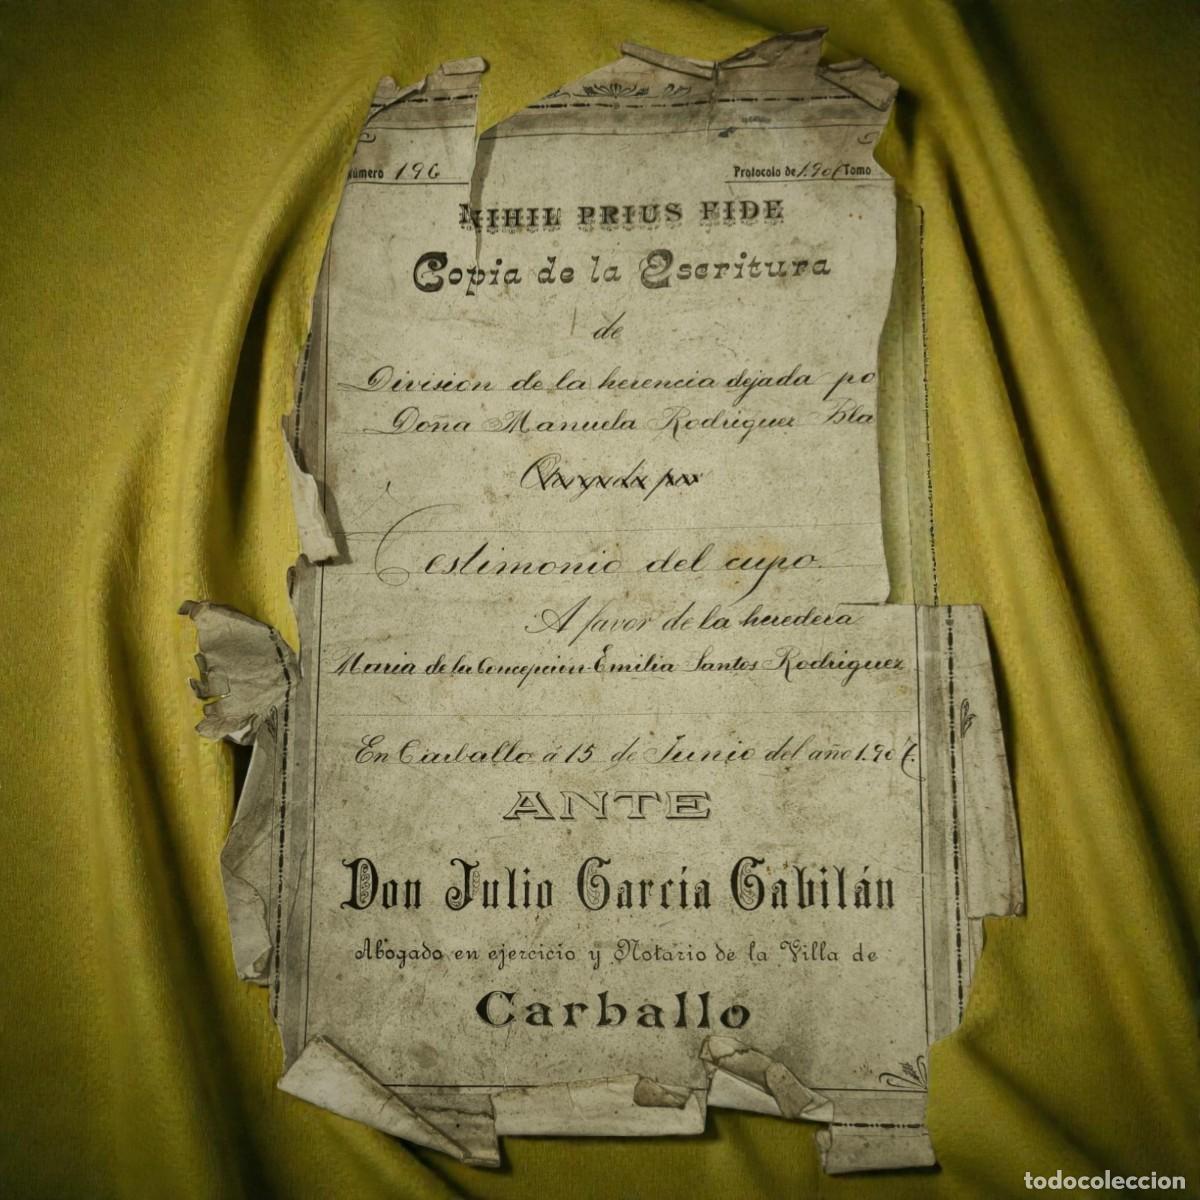 Número 196
Protocolo de 1.906 Tomo
NIHIL PRIUS FIDE
Copia de la Escritura
de
División de la herencia dejada po
Doña Manuela Rodriguez Bla
Testimonio del cupo.
A favor de la heredera
Maria de la Concepcion Emilia Santos Rodriguez
En Carballo á 15 de Junio del año 1.906.
ANTE
Don Julio García Gabilán
Abogado en ejercicio y Notario de la Villa de
Carballo
todocoleccion